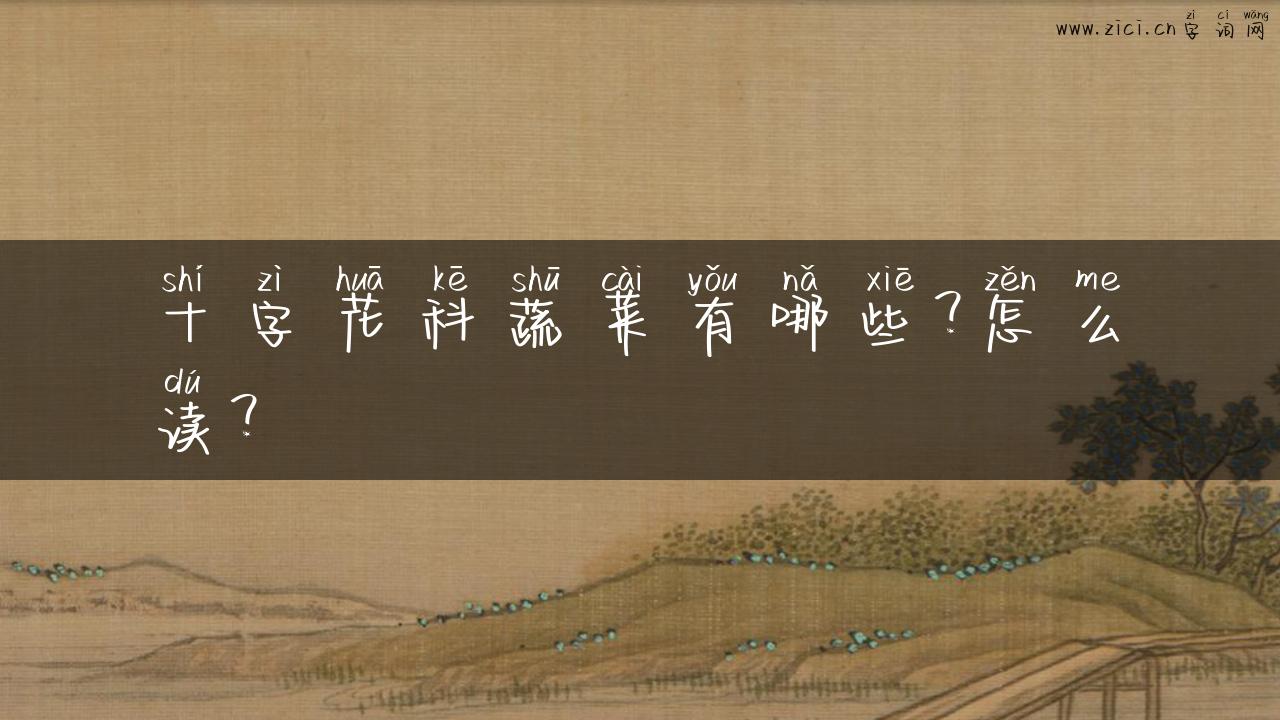 zì cí wǎng
www.zici.cn字词网
shí zì huā kē shū cài yǒu nǎ xiē zěn me
十字花科蔬菜有哪些?怎么
dú
读?